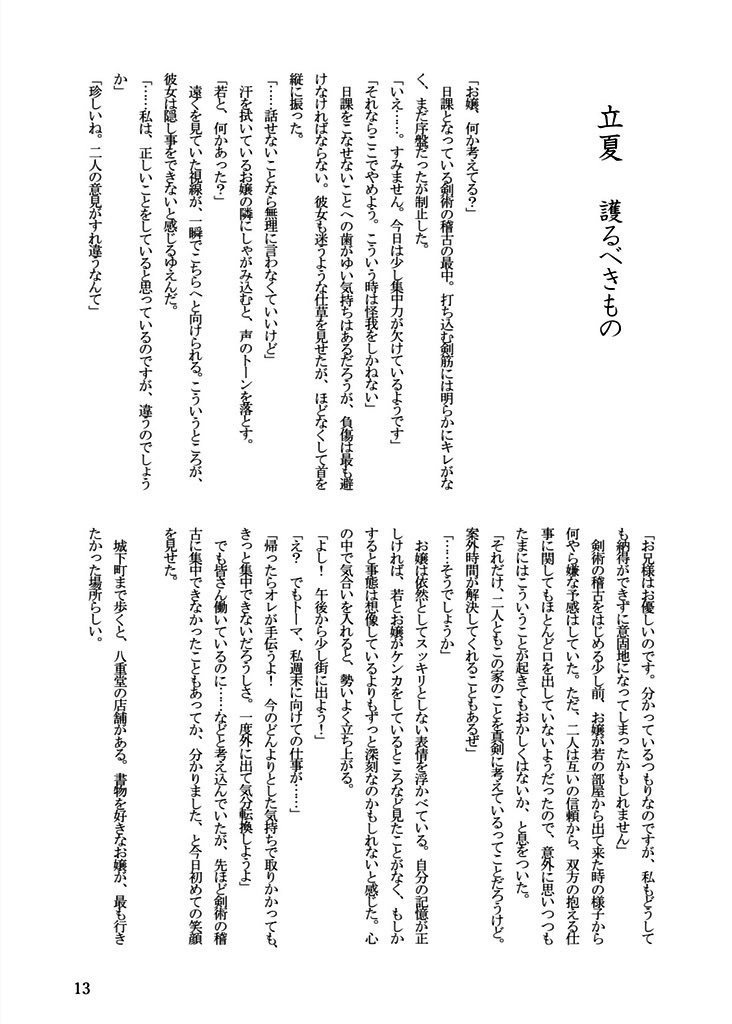 立夏　護るべきもの
「お嬢、何か考えてる？」
　日課となっている剣術の稽古の最中。打ち込む剣筋には明らかにキレがな
く、まだ序盤だったが制止した。
「いえ……。すみません。今日は少し集中力が欠けているようです」
「それならここでやめよう。こういう時は怪我をしかねない」
　日課をこなせないことへの歯がゆい気持ちはあるだろうが、負傷は最も避
けなければならない。彼女も迷うような仕草を見せたが、ほどなくして首を
縦に振った。
「……話せないことなら無理に言わなくていいけど」
　汗を拭いているお嬢の隣にしゃがみ込むと、声のトーンを落とす。
「若と、何かあった？」
　遠くを見ていた視線が、一瞬でこちらへと向けられる。こういうところが、
彼女は隠し事をできないと感じるゆえんだ。
「……私は、正しいことをしていると思っているのですが、違うのでしょう
か」
「珍しいね。二人の意見がすれ違うなんて」
「お兄様はお優しいのです。分かっているつもりなのですが、私もどうして
も納得ができずに意固地になってしまったかもしれません」
　剣術の稽古をはじめる少し前、お嬢が若の部屋から出て来た時の様子から
何やら嫌な予感はしていた。ただ、二人は互いの信頼から、双方の抱える仕
事に関してもほとんど口を出していないようだったので、意外に思いつつも
たまにはこういうことが起きてもおかしくはないか、と息をついた。
「それだけ、二人ともこの家のことを真剣に考えているってことだろうけど。
案外時間が解決してくれることもあるぜ」
「……そうでしょうか」
　お嬢は依然としてスッキリとしない表情を浮かべている。自分の記憶が正
しければ、若とお嬢がケンカをしているところなど見たことがなく、もしか
すると事態は想像しているよりもずっと深刻なのかもしれないと感じた。心
の中で気合いを入れると、勢いよく立ち上がる。
「よし！　午後から少し街に出よう！」
「え？　でもトーマ、私週末に向けての仕事が……」
「帰ったらオレが手伝うよ！　今のどんよりとした気持ちで取りかかっても、
きっと集中できないだろうしさ。一度外に出て気分転換しようよ」
　でも皆さん働いているのに……などと考え込んでいたが、先ほど剣術の稽
古に集中できなかったこともあってか、分かりました、と今日初めての笑顔
を見せた。
　城下町まで歩くと、八重堂の店舗がある。書物を好きなお嬢が、最も行き
たかった場所らしい。
13